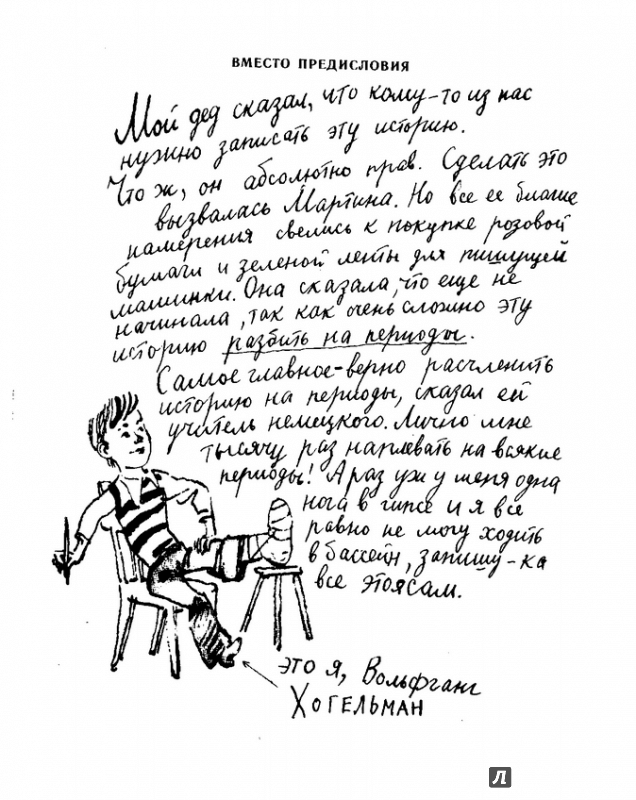 ВМЕСТО ПРЕДИСЛОВИЯ
Мой дед сказал, что кому-то из нас
нужно записать эту историю.
Что ж, он абсолютно прав. Сделать это
вызвалась Мартина. Но все ее благие
намерения свелись к покупке розовой
бумаги и зеленой ленты для пишущей
машинки. Она сказала, что еще не
начинала, так как очень сложно эту
историю разбить на периоды.
Самое главное-верно расчленить
историю на периоды, сказал ей
учитель немецкого. Лично мне
тысячу раз наплевать на всякие
периоды! А раз уж у меня одна
нога в гипсе и я все
равно не могу ходить
в бассейн, запишу-ка
все это я сам.
это я, Вольфганг
ХОГЕЛЬМАН
Л